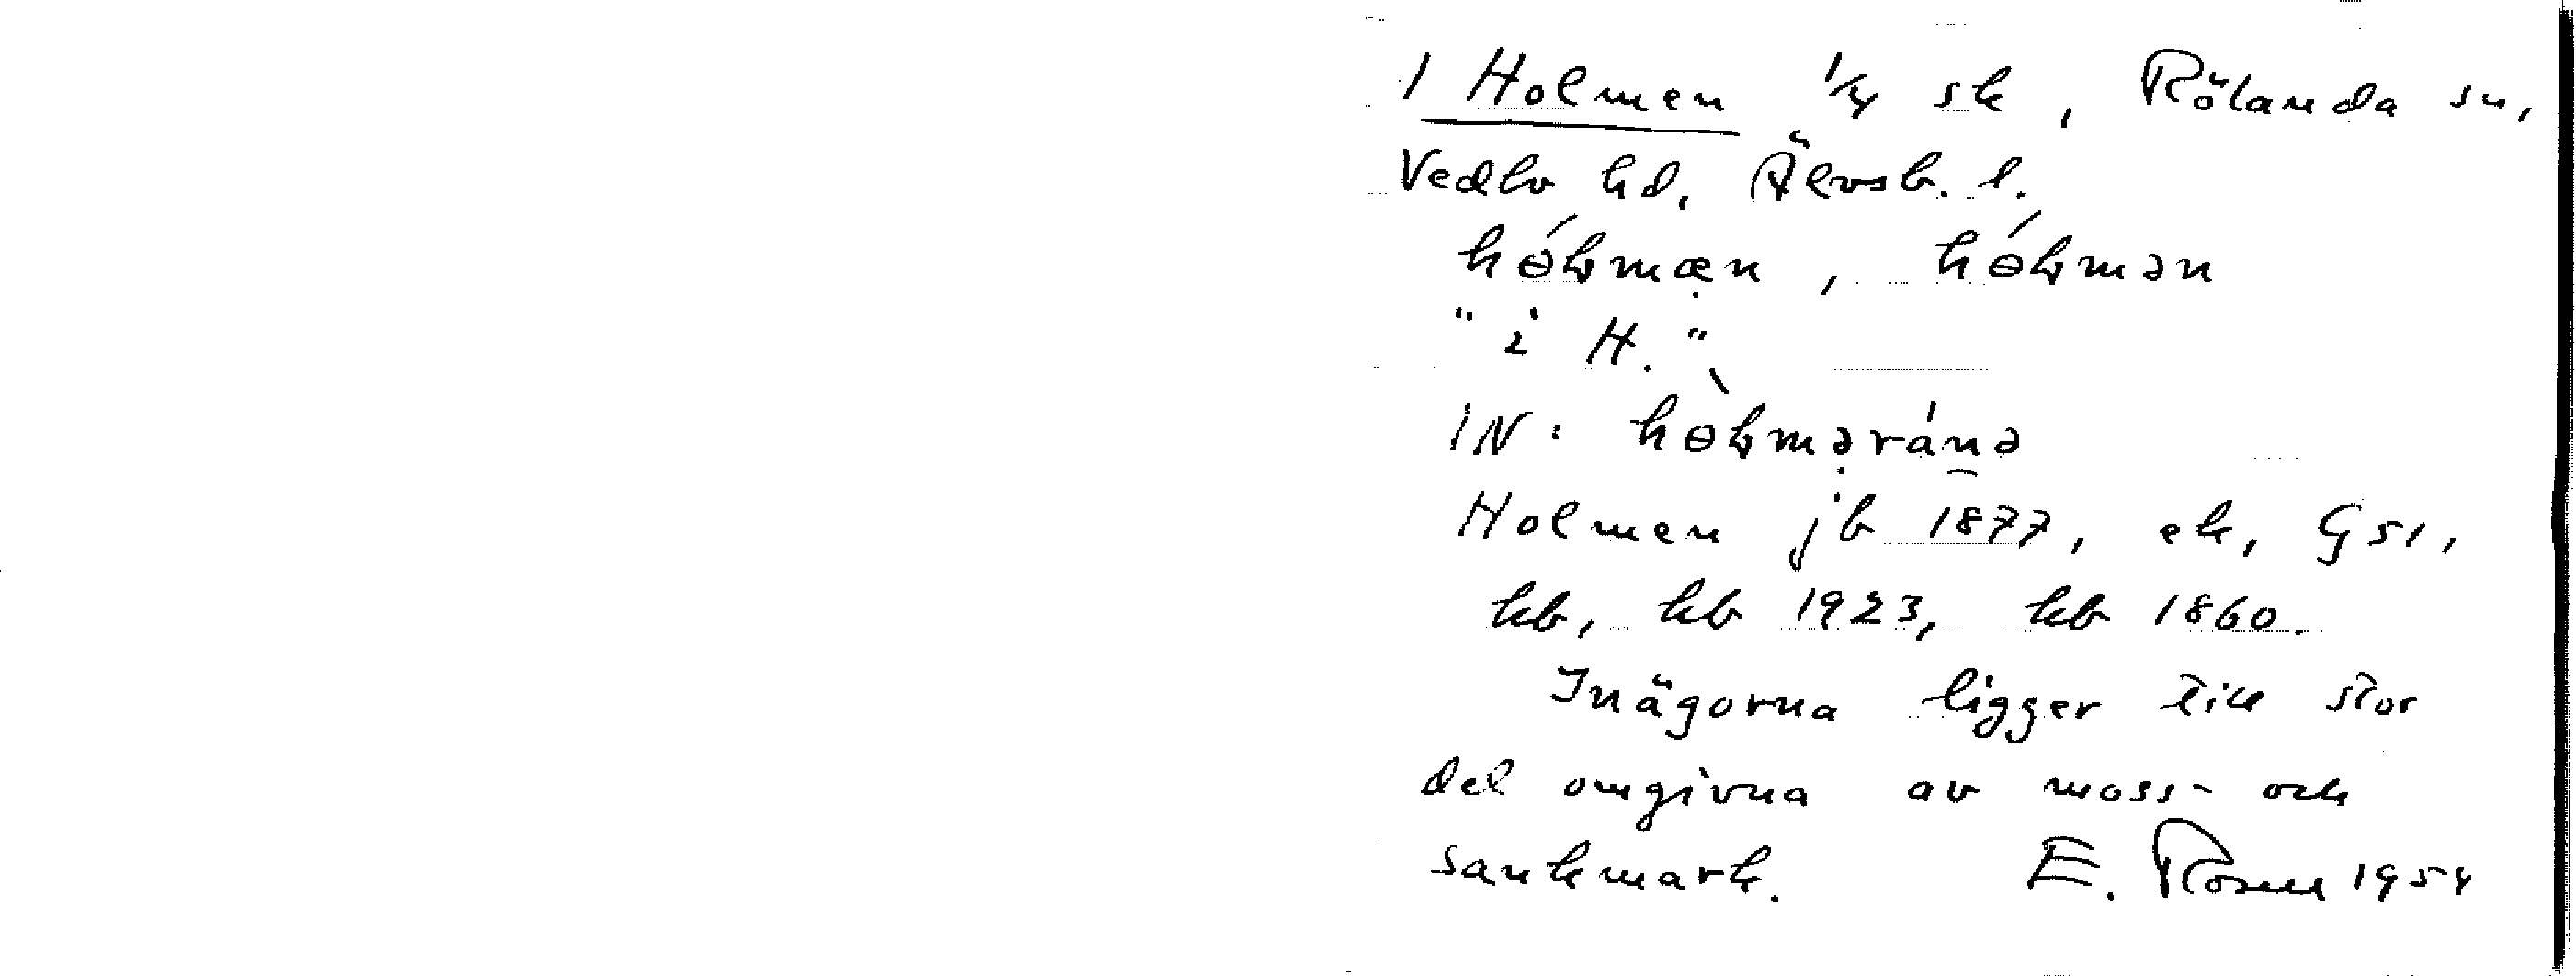 1 Holmen 1/4 sk, Rölanda sn,
Vedbo hd, Älvsb. l.
hɵ́ƚmæ̣n, hɵ́ƚmən
"i H."
IN: hɵ̀ƚmə̣rána
Holmen jb 1877, ek, G51,
kb, kb 1923, kb 1860.
Inägorna ligger till stor
del omgivna av moss- och
sankmark. E. Rosell 1954